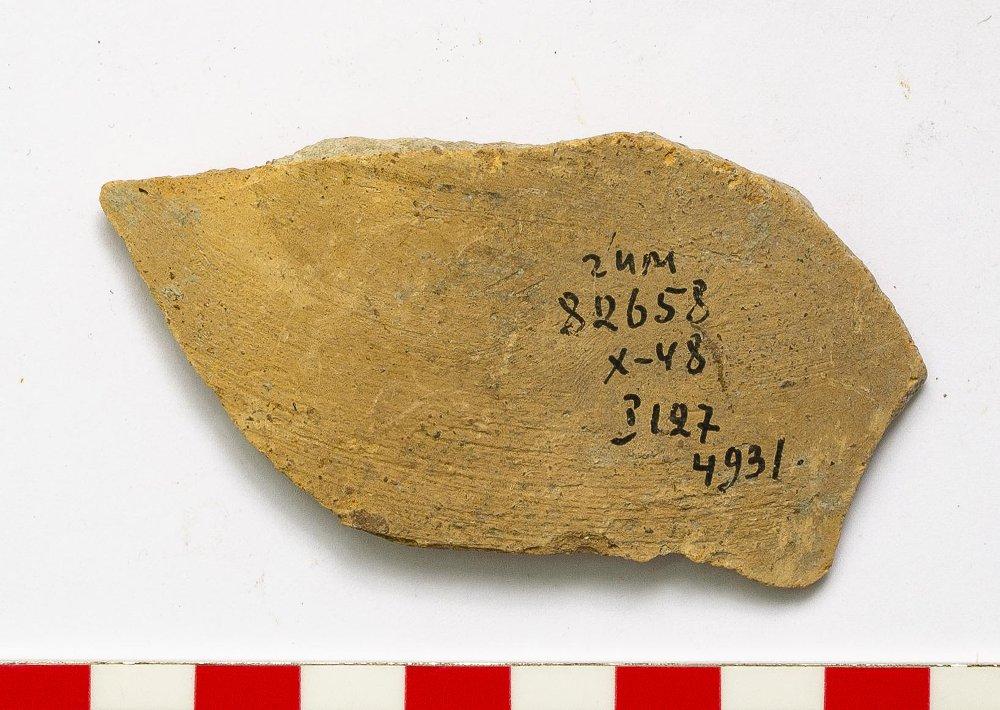 гим
82658
X-48
I 127
4931.